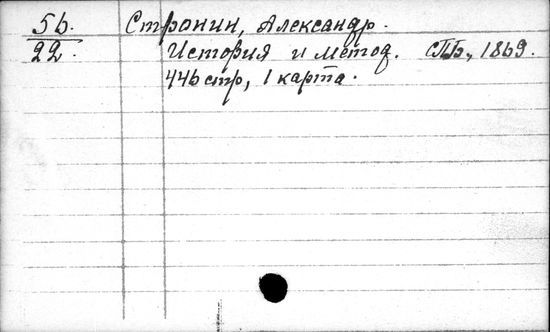 56.
22.
Стронин, Александр.
История и метод. СПб., 1869.
446 стр, 1 карта.